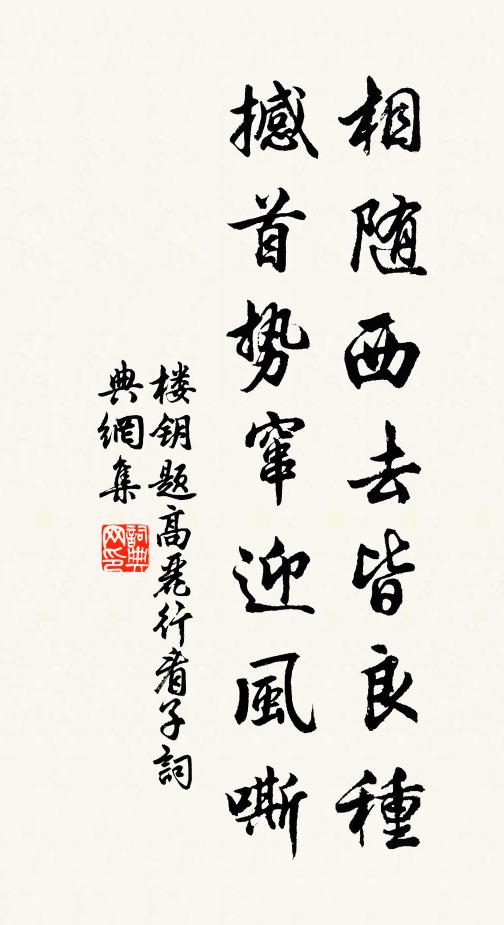 相随西去皆良種
撼首势窜迎風嘶
楼钥题高丽行看子詞
典網集
詞典网印